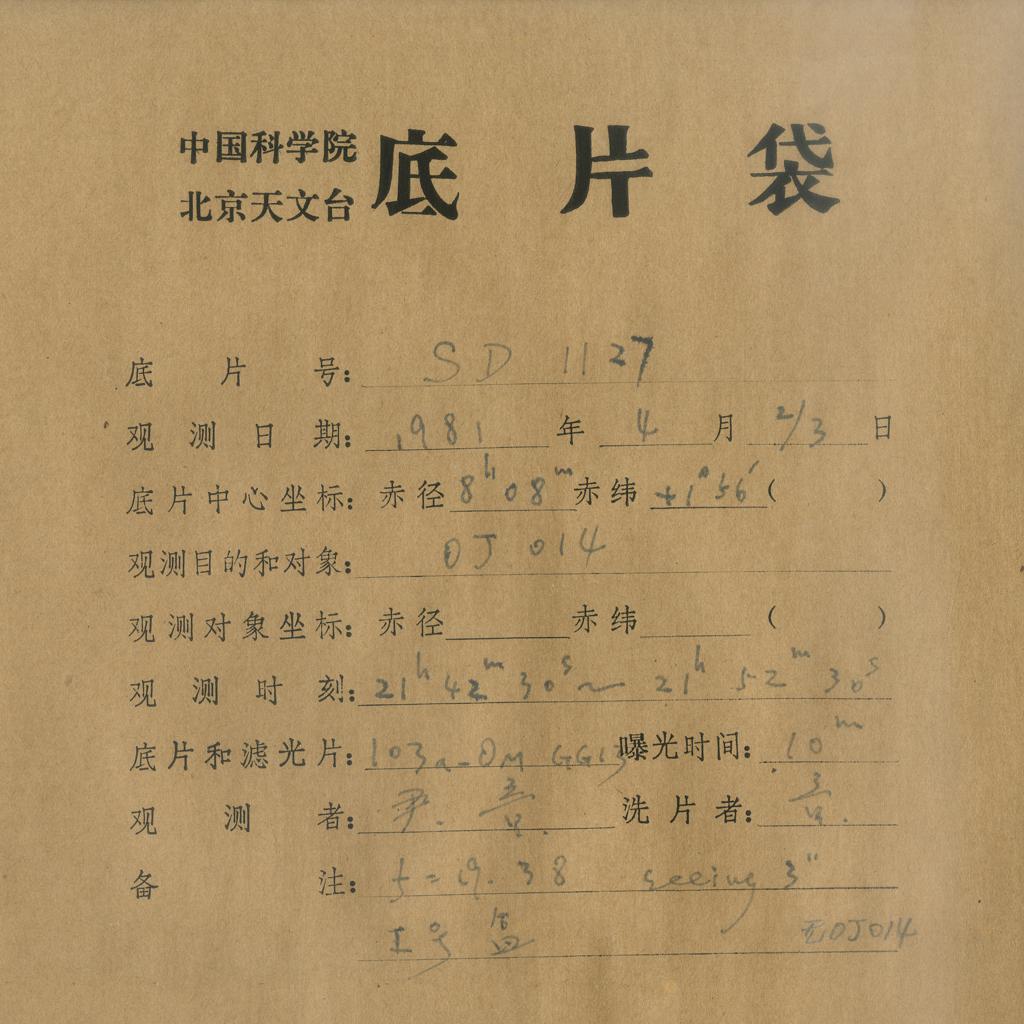 中国科学院
北京天文台
底片袋
底片号: SD 1127
观测日期: 1981 年 4 月 2/3 日
底片中心坐标: 赤径 8h 08m 赤纬 +1°56′ ( )
观测目的和对象: OJ 014
观测对象坐标: 赤径 赤纬 ( )
观测时刻: 21h 42m 30s ~ 21h 52m 30s
底片和滤光片: 103a-OM GG13 曝光时间: 10m
观测者: 尹. 洗片者:
备注: = 19.38 seeing 3″
号
OJ014